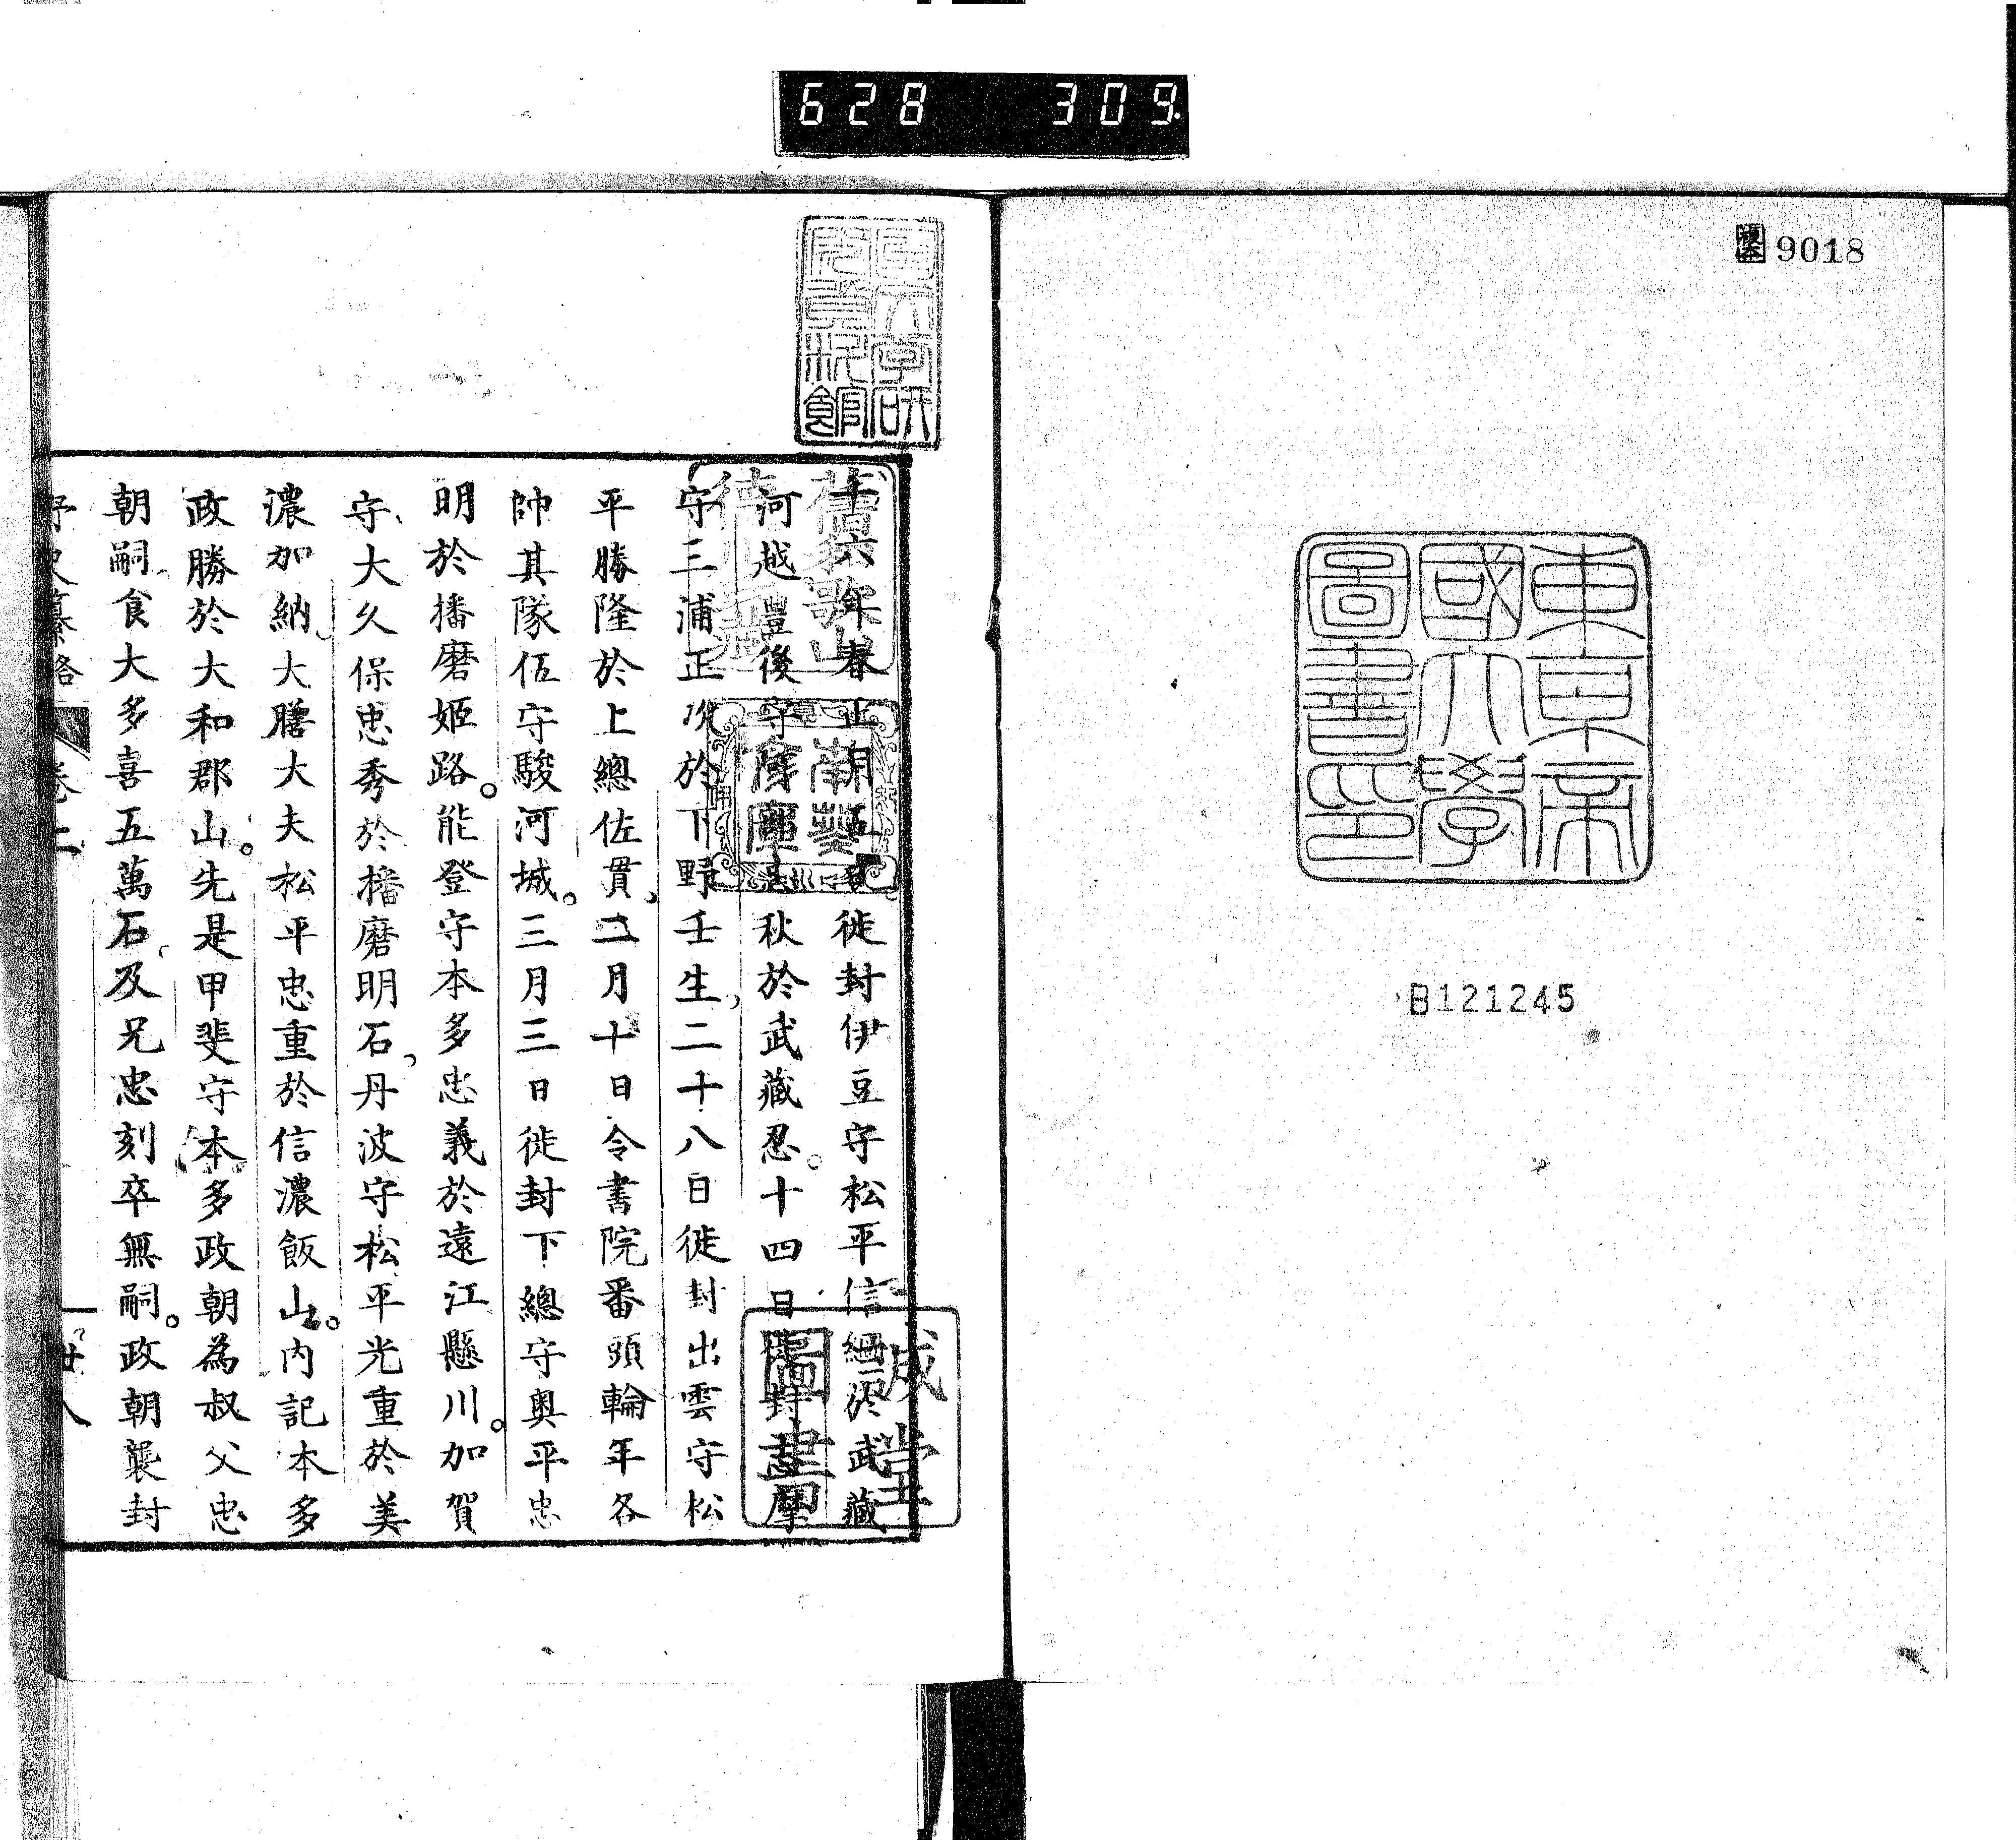 628 309
複本 9018
東京帝
國大學
圖書印
B121245
國文學研
究資料館
舊和歌山
德川氏藏
南葵
文庫
十六年春正月五日徙封伊豆守松平信綱於武藏
河越豐後守阿部忠秋於武藏忍。十四日徙封志摩
守三浦正次於下野壬生、二十八日徙封出雲守松
平勝隆於上總佐貫、二月十日令書院番頭輪年各
帥其隊伍守駿河城。三月三日徙封下總守奥平忠
明於播磨姬路。能登守本多忠義於遠江懸川。加賀
守、大久保忠秀於播磨明石、丹波守松平光重於美
濃加納、大膳大夫松平忠重於信濃飯山。内記本多
政勝於大和郡山。先是甲斐守本多政朝為叔父忠
朝嗣、食大多喜五萬石、及兄忠刻卒無嗣。政朝襲封
野史纂略 卷上 一 廿八
誠堂
圖書